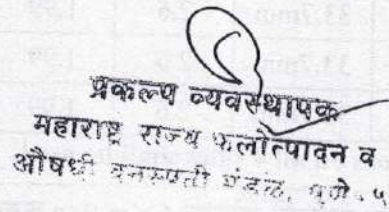 33.7mm 2.6 1.99
33.7mm
प्रकल्प व्यवस्थापक
महाराष्ट्र राज्य फलोत्पादन व
औषधी वनस्पती मंडळ, पुणे-५